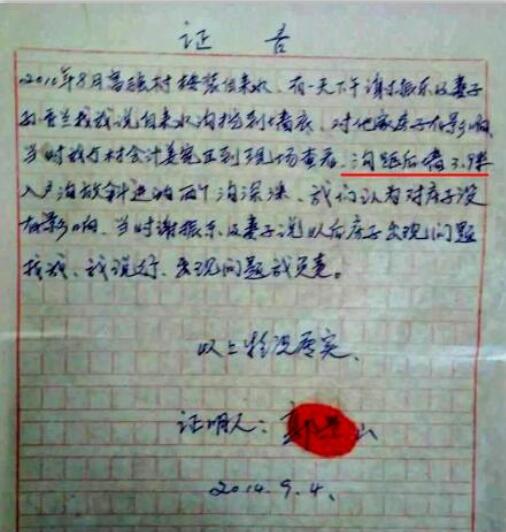 证言
2010年8月高疃村安装自来水、有一天下午谢振东及妻子
找我说自来水沟挖到墙底、对他家房子有影响
当时我和村会计姜宪正到现场查看、沟距后墙3.9米
入户沟放斜进的 沟深浅、我们认为对房子没
有影响、当时谢振东及妻子说以后房子出现问题
找我、我说好、出现问题我负责。
以上情况属实、
证明人：郭 山
2014.9.4.